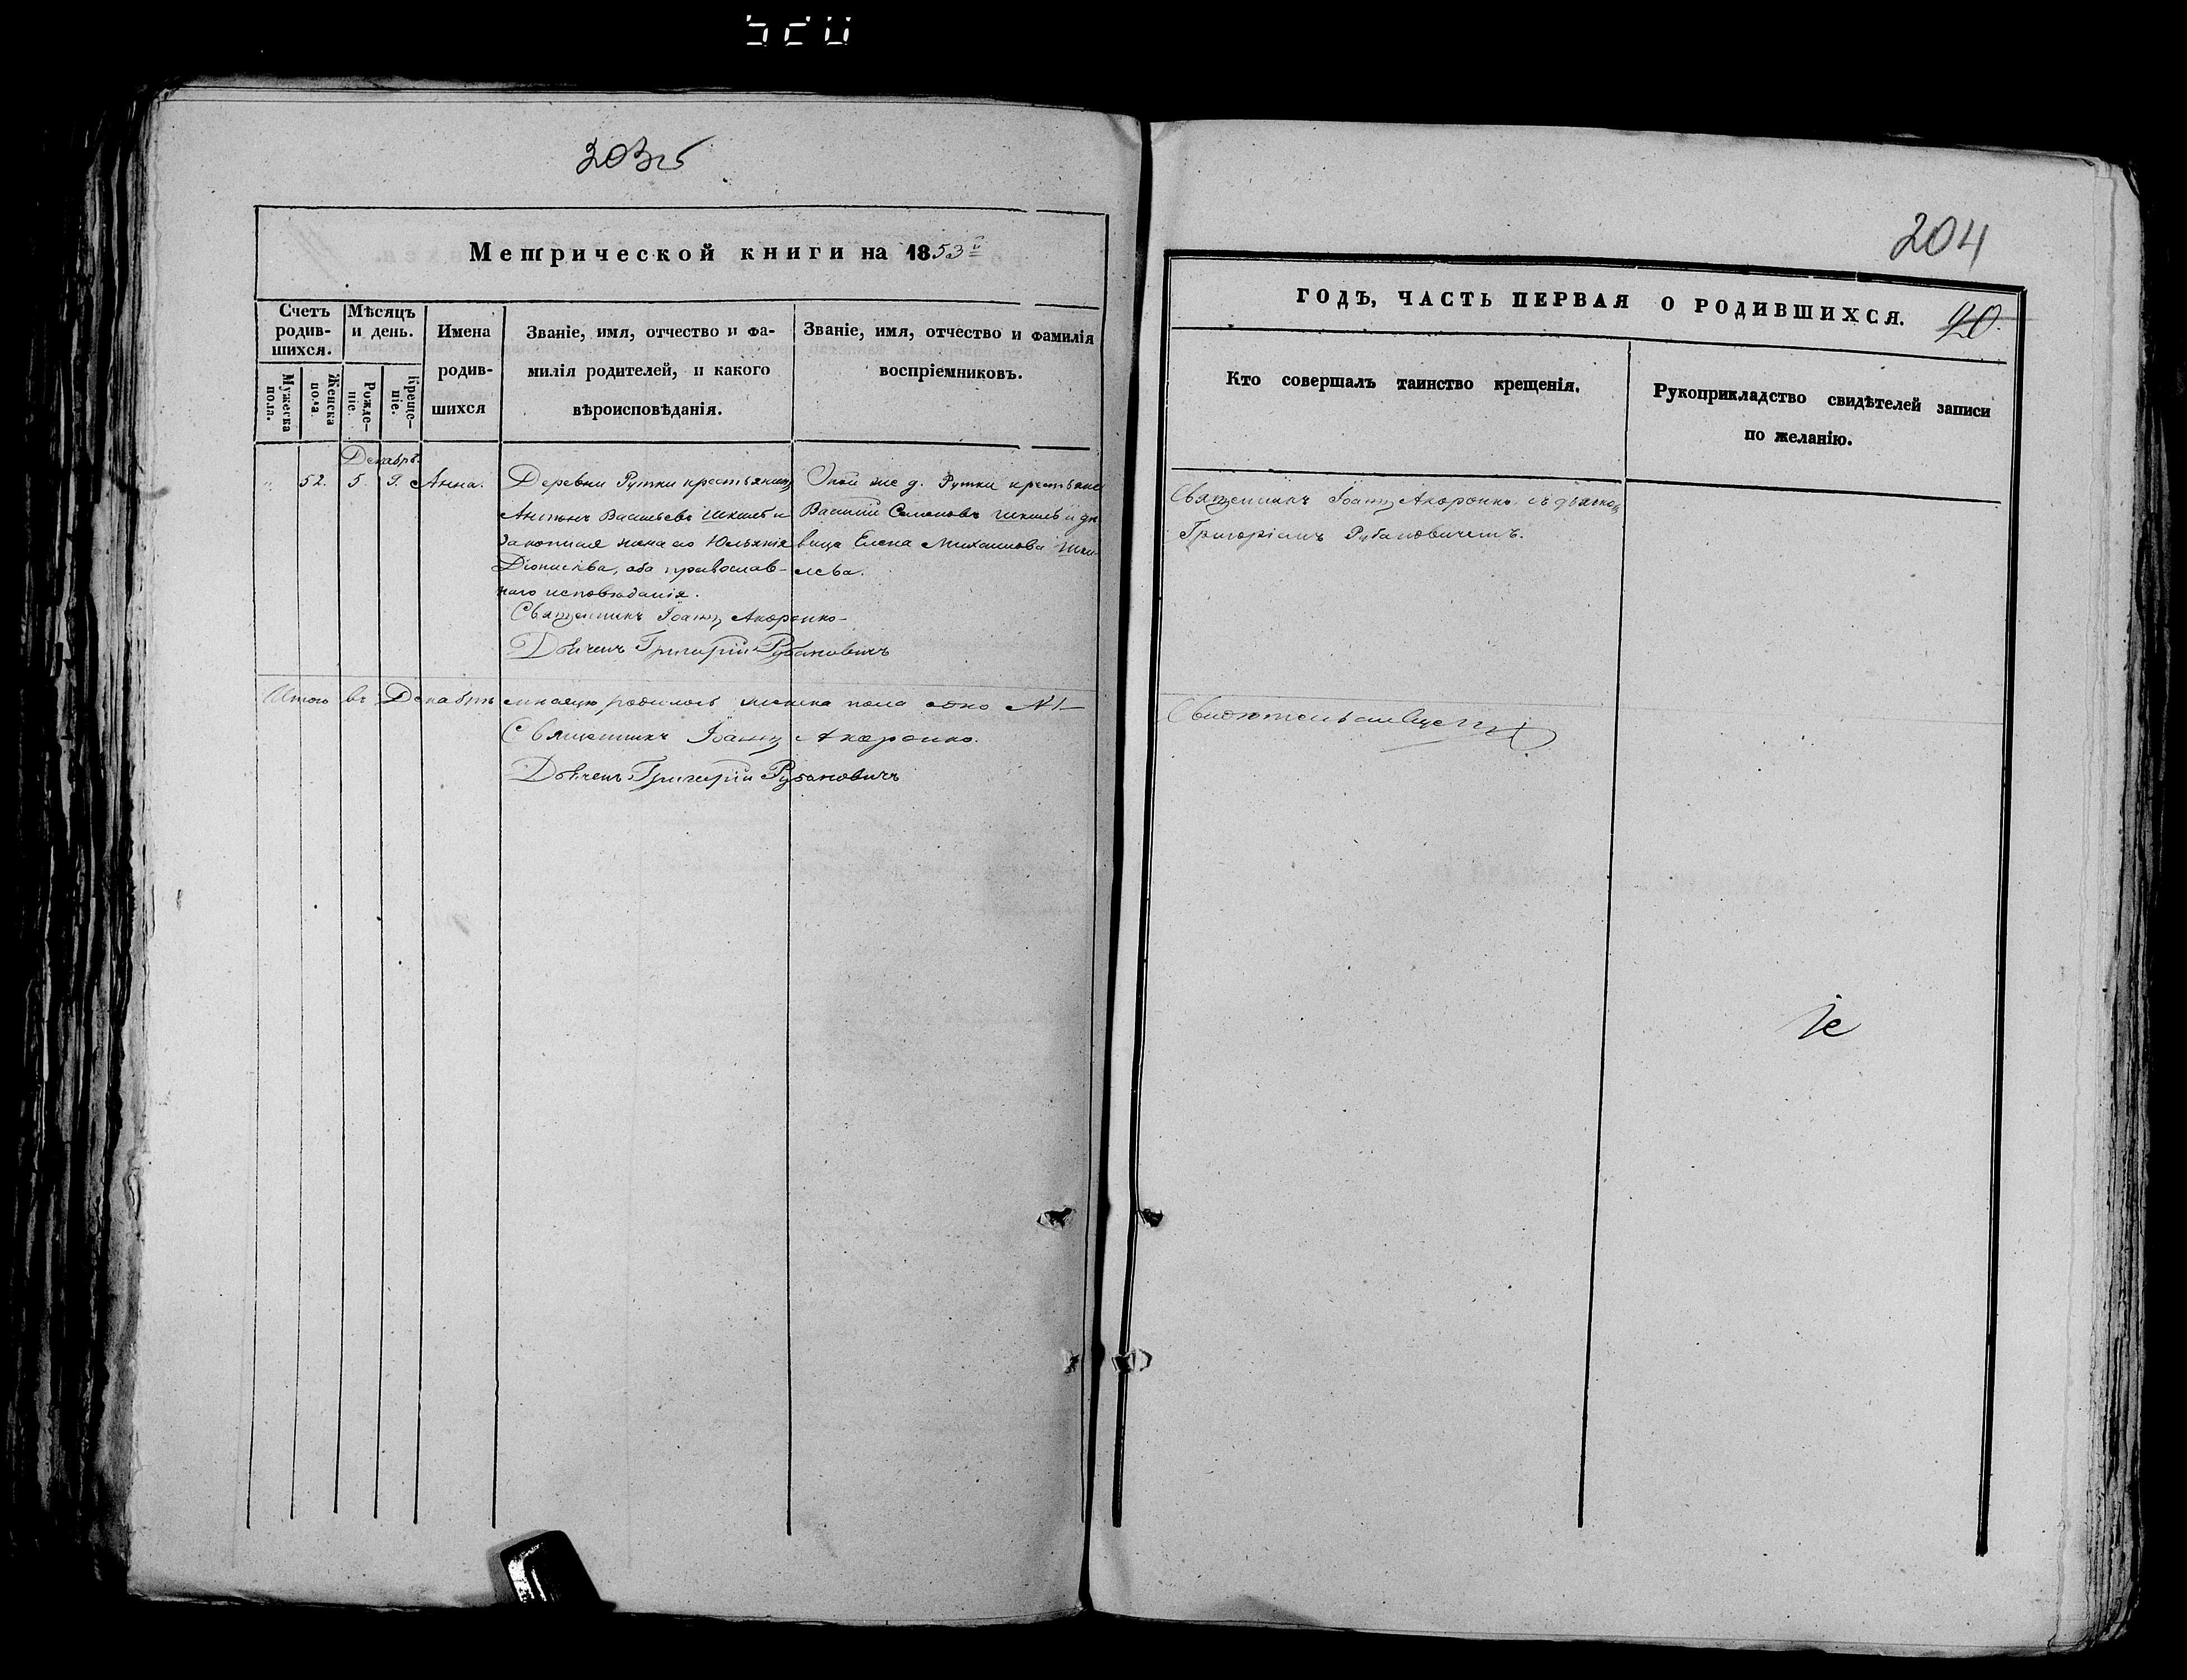 203об
204
Метрической книги на 1853й
ГОДЪ, ЧАСТЬ ПЕРВАЯ О РОДИВШИХСЯ.
20.
Счетъ родив-шихся.
Мѣсяцъ и день.
Мужеска пола.
Женска пола.
Рожде-ніе.
Креще-ніе.
Имена
родив-
шихся
Званіе, имя, отчество и фа-
милія родителей, и какого
вѣроисповѣданія.
Званіе, имя, отчество и фамилія
воспріемниковъ.
Кто совершалъ таинство крещенія.
Рукоприкладство свидѣтелей записи
по желанію.
Декабрь.
„ 52. 5. 9. Анна.
Деревни Рутки крестьянинъ
Антонъ Васильевъ Шкиль и
законная жена его Юльянія
Діонисіева, оба православ-
наго исповѣданія.
Священникъ Іоаннъ
Дьячекъ Григорій Рубановичъ
Той же д. Рутки крестьянинъ
Василій Семеновъ Шкиль и дѣ-
вица Елена Михаилова Шки-
лева.
Священникъ Іоаннъ съ дьячкомъ
Григоріемъ Рубановичемъ.
Итого въ Декабрѣ мѣсяцѣ родилось женска пола одно №1
Священникъ Іоаннъ
Дьячекъ Григорій Рубановичъ